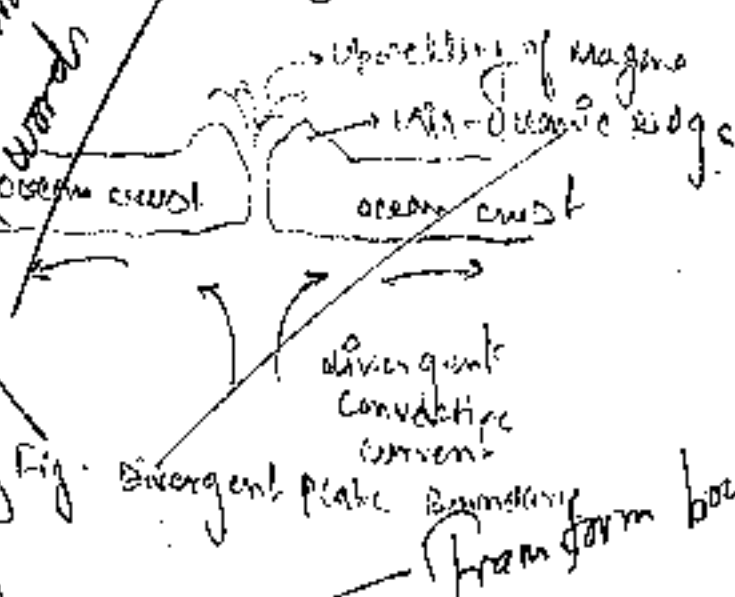 upwelling of magma
words
mid-oceanic ridge
ocean crust
ocean crust
divergent
convective
current
Fig. Divergent plate Boundary
Transform